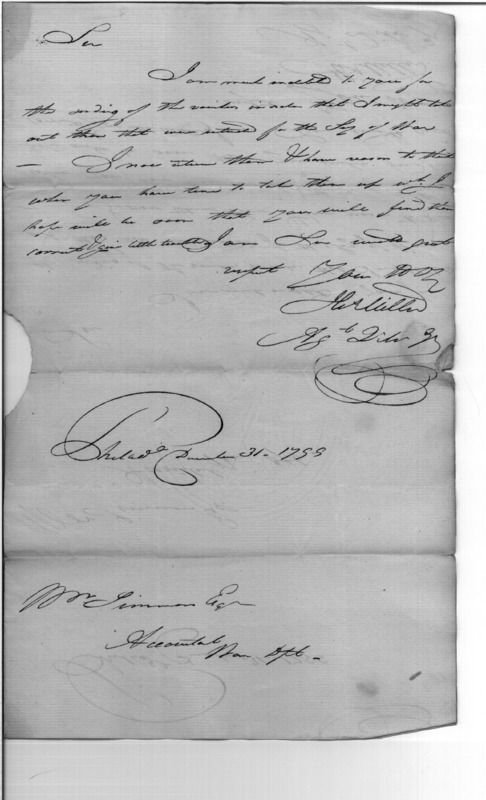 Sir
I am much indebted to you for
the sending of the vouchers in order that I might take
out those that were intended for the Secy of War
— I now return them & have reason to think
when you have time to take them up which I
hope will be soon that you will find them
correct & give little trouble I am Sir with great
respect Your Ob
Miller
Philada December 31- 1799
Wm Simmons Esqr
Accountant
War Dpt -